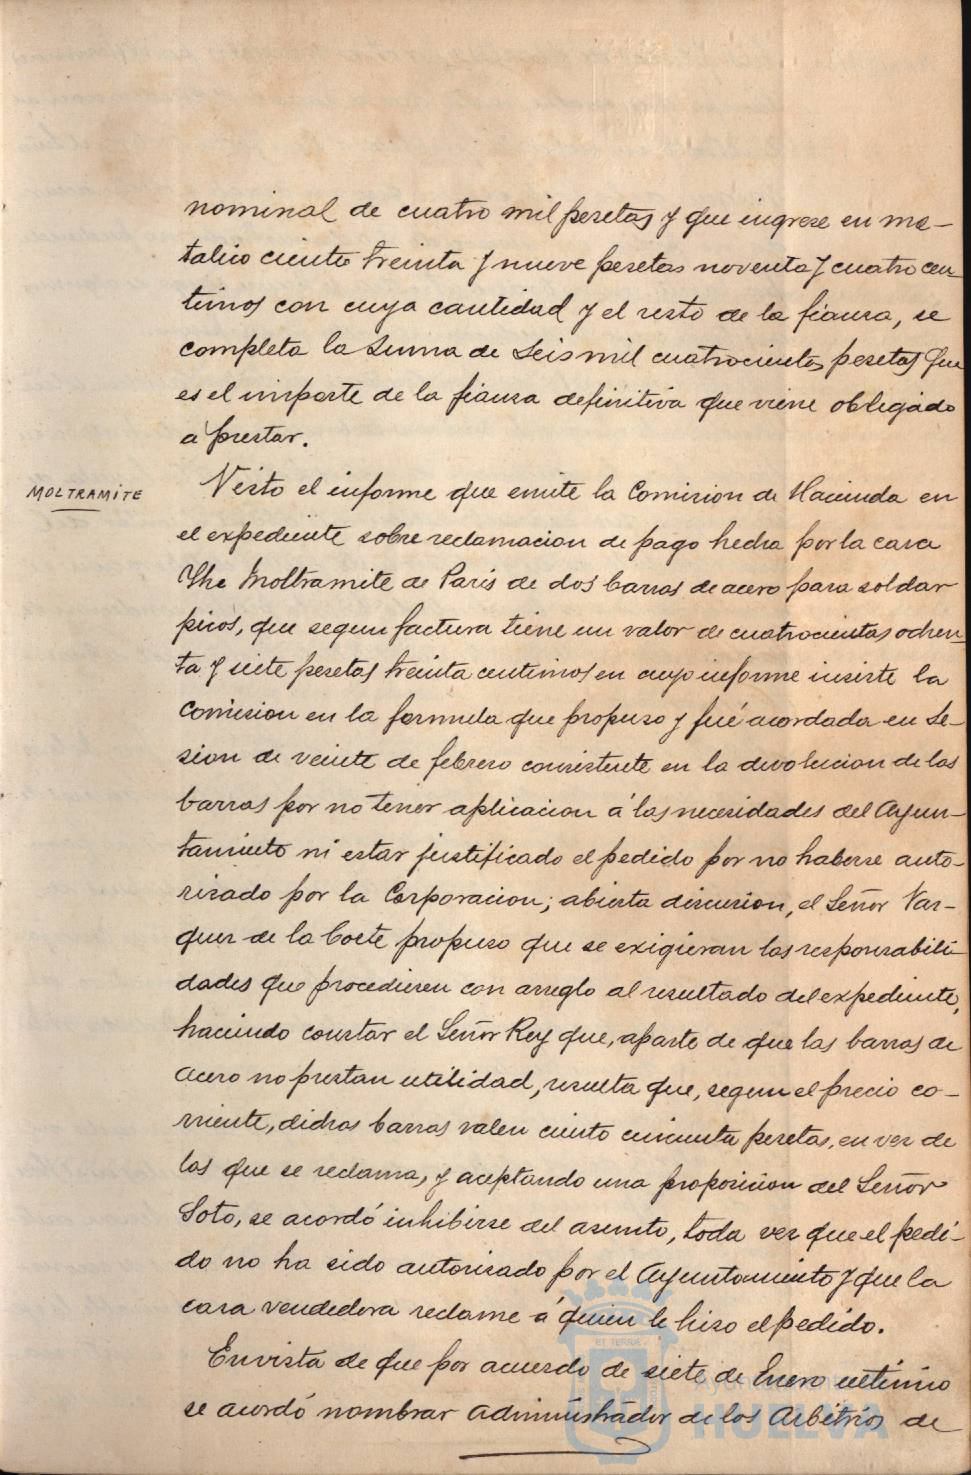 nominal de cuatro mil pesetas y que ingrese en me-
talico ciento treinta y nueve pesetas noventa y cuatro cen-
timos con cuya cantidad y el resto de la fianza, se
completa la suma de Seis mil cuatrocientas pesetas que
es el importe de la fianza definitiva que viene obligado
á prestar.
MOLTRAMITE
Visto el informe que emite la Comision de Hacienda en
el expediente sobre reclamacion de pago hecha por la casa
The Moltramite de Paris de dos barras de acero para soldar
picos, que segun factura tiene un valor de cuatrocientas ochen-
ta y siete pesetas treinta centimos en cuyo informe insiste la
Comision en la formula que propuso y fué acordada en Se-
sion de veinte de febrero consistente en la devolucion de las
barras por no tener aplicacion á las necesidades del Ayun-
tamiento ni estar justificado el pedido por no haberse auto-
rizado por la Corporacion; abierta discusion, el Señor Vaz-
quez de la Corte propuso que se exigieran las responsabili-
dades que procediesen con arreglo al resultado del expediente,
haciendo constar el Señor Rey que, aparte de que las barras de
acero no prestan utilidad, resulta que, segun el precio co-
rriente, dichas barras valen ciento cincuenta pesetas, en vez de
las que se reclama, y aceptando una proposicion del Señor
Soto, se acordó inhibirse del asunto, toda vez que el pedi-
do no ha sido autorizado por el Ayuntamiento y que la
casa vendedora reclame á quien le hizo el pedido.
En vista de que por acuerdo de siete de Enero ultimo
se acordó nombrar Administrador de los Arbitrios de
Ayuntamiento
HUELVA